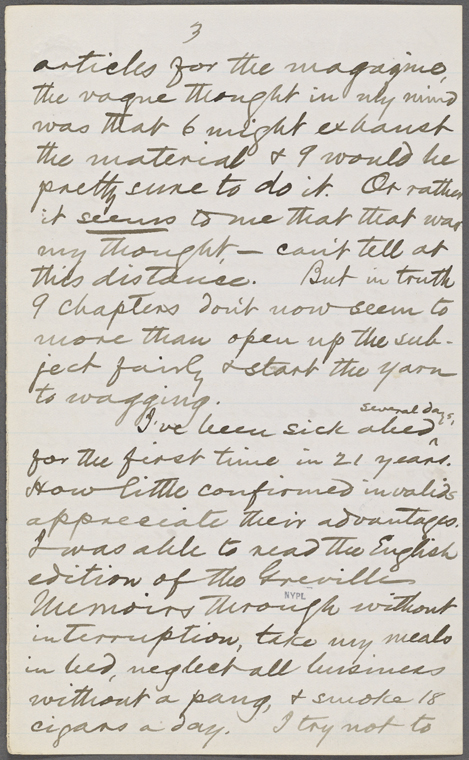 3
articles for the magazine,
the vague thought in my mind
was that 6 might exhaust
the material & 9 would be
pretty sure to do it. Or rather
it seems to me that that was
my thought, — can't tell at
this distance. But in truth
9 chapters don't now seem to
more than open up the sub-
ject fairly & start the yarn
to wagging.
I've been sick abed several days,
for the first time in 21 years.
How little confirmed invalids
appreciate their advantages.
I was able to read the English
edition of the Greville
NYPL
Memoirs through without
interruption, take my meals
in bed, neglect all business
without a pang, & smoke 18
cigars a day. I try not to